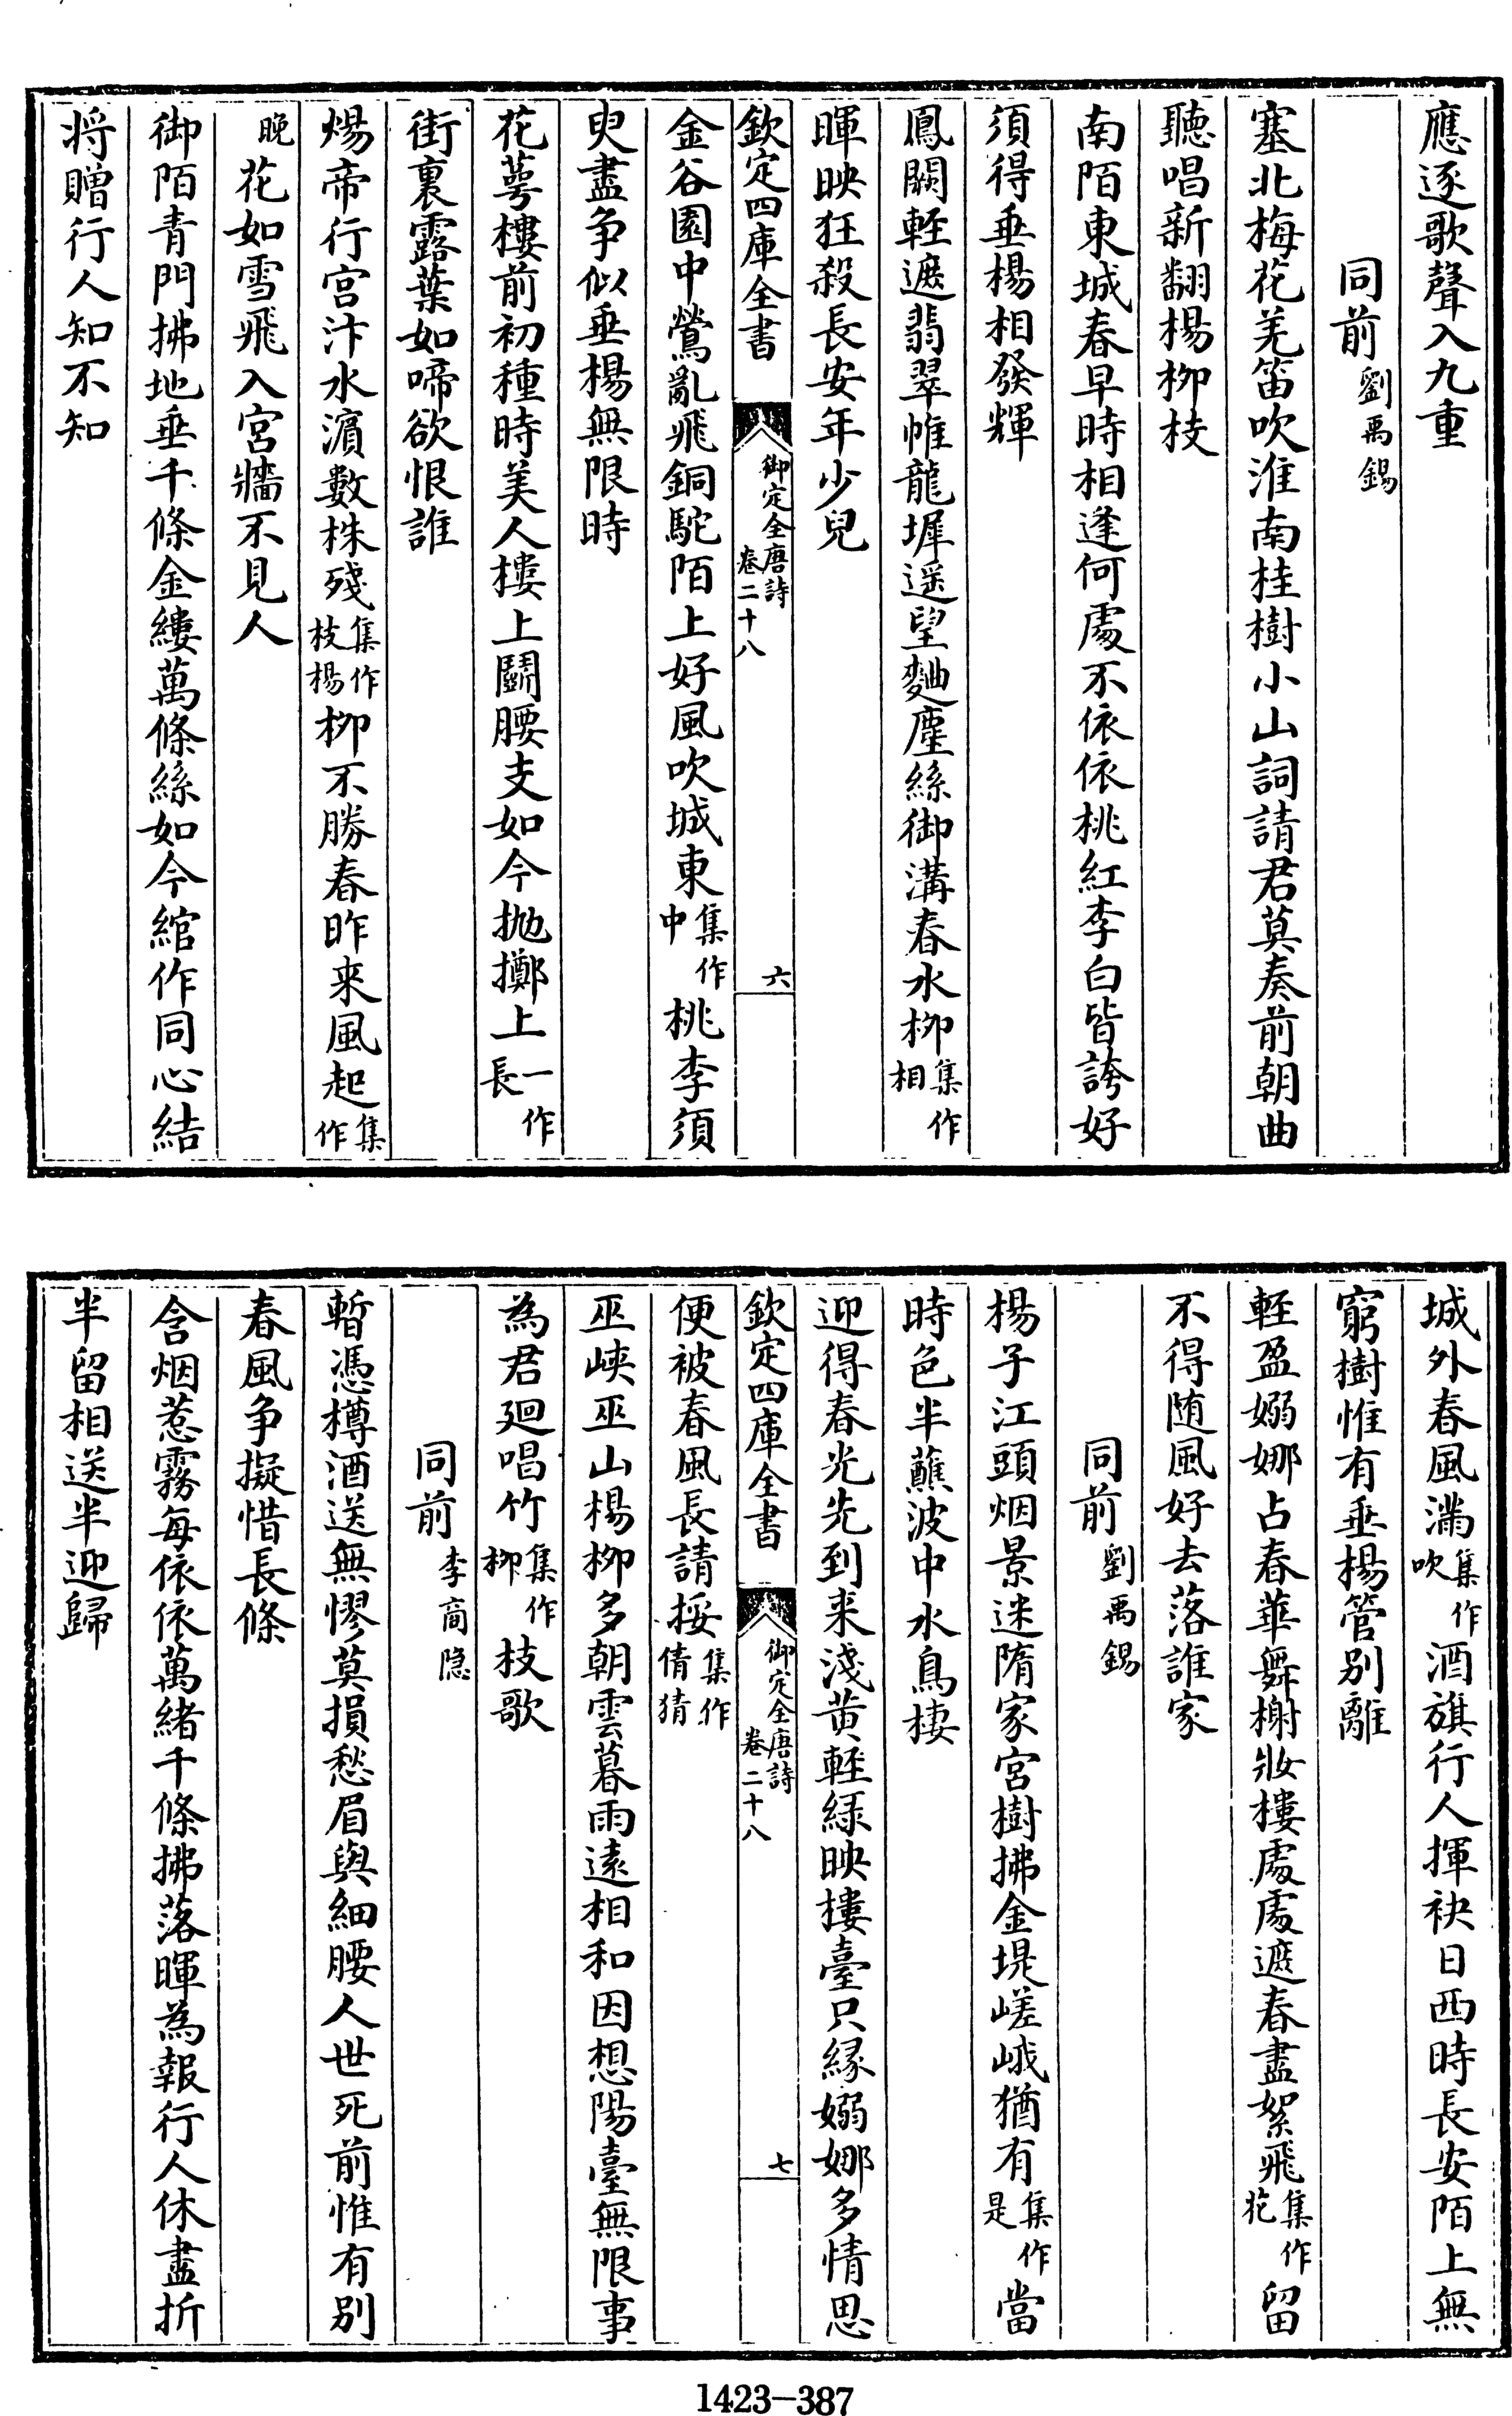 應逐歌聲入九重
同前劉禹錫
塞北梅花羌笛吹淮南桂樹小山詞請君莫奏前朝曲
聽唱新翻楊栁枝
南陌東城春早時相逢何處不依依桃紅李白皆誇好
須得垂楊相發輝
鳳闕輊遮翡翠帷龍墀遥望麯塵絲御溝春水栁集作相
暉映狂殺長安年少兒
欽定四庫全書 御定全唐詩卷二十八 六
金谷園中鶯亂飛銅駝陌上好風吹城東集作中桃李須
㬰盡争似垂楊無限時
花萼樓前初種時美人樓上鬬腰支如今抛擲上一作長
街裏露葉如啼欲恨誰
煬帝行宫汴水濵數株殘集作枝楊栁不勝春昨来風起集作
晚花如雪飛入宫牆不見人
御陌青門拂地垂千條金縷萬條絲如今綰作同心結
将贈行人知不知
城外春風滿集作吹酒旗行人揮袂日西時長安陌上無
窮樹惟有垂楊管别離
輊盈嫋娜占春華舞榭妝樓處處遮春盡絮飛集作花留
不得随風好去落誰家
同前劉禹錫
楊子江頭烟景迷隋家宫樹拂金堤嵯峨猶有集作是當
時色半蘸波中水鳥棲
迎得春光先到来淺黄輊緑映樓臺只縁嫋娜多情思
欽定四庫全書 御定全唐詩卷二十八 七
便被春風長請挼集作倩猜
巫峽巫山楊栁多朝雲暮雨遠相和因想陽臺無限事
為君廻唱竹集作栁枝歌
同前李商隐
暫憑樽酒送無憀莫損愁眉與細腰人世死前惟有别
春風争擬惜長條
含烟惹霧每依依萬緒千條拂落暉為報行人休盡折
半留相送半迎歸
1423-387